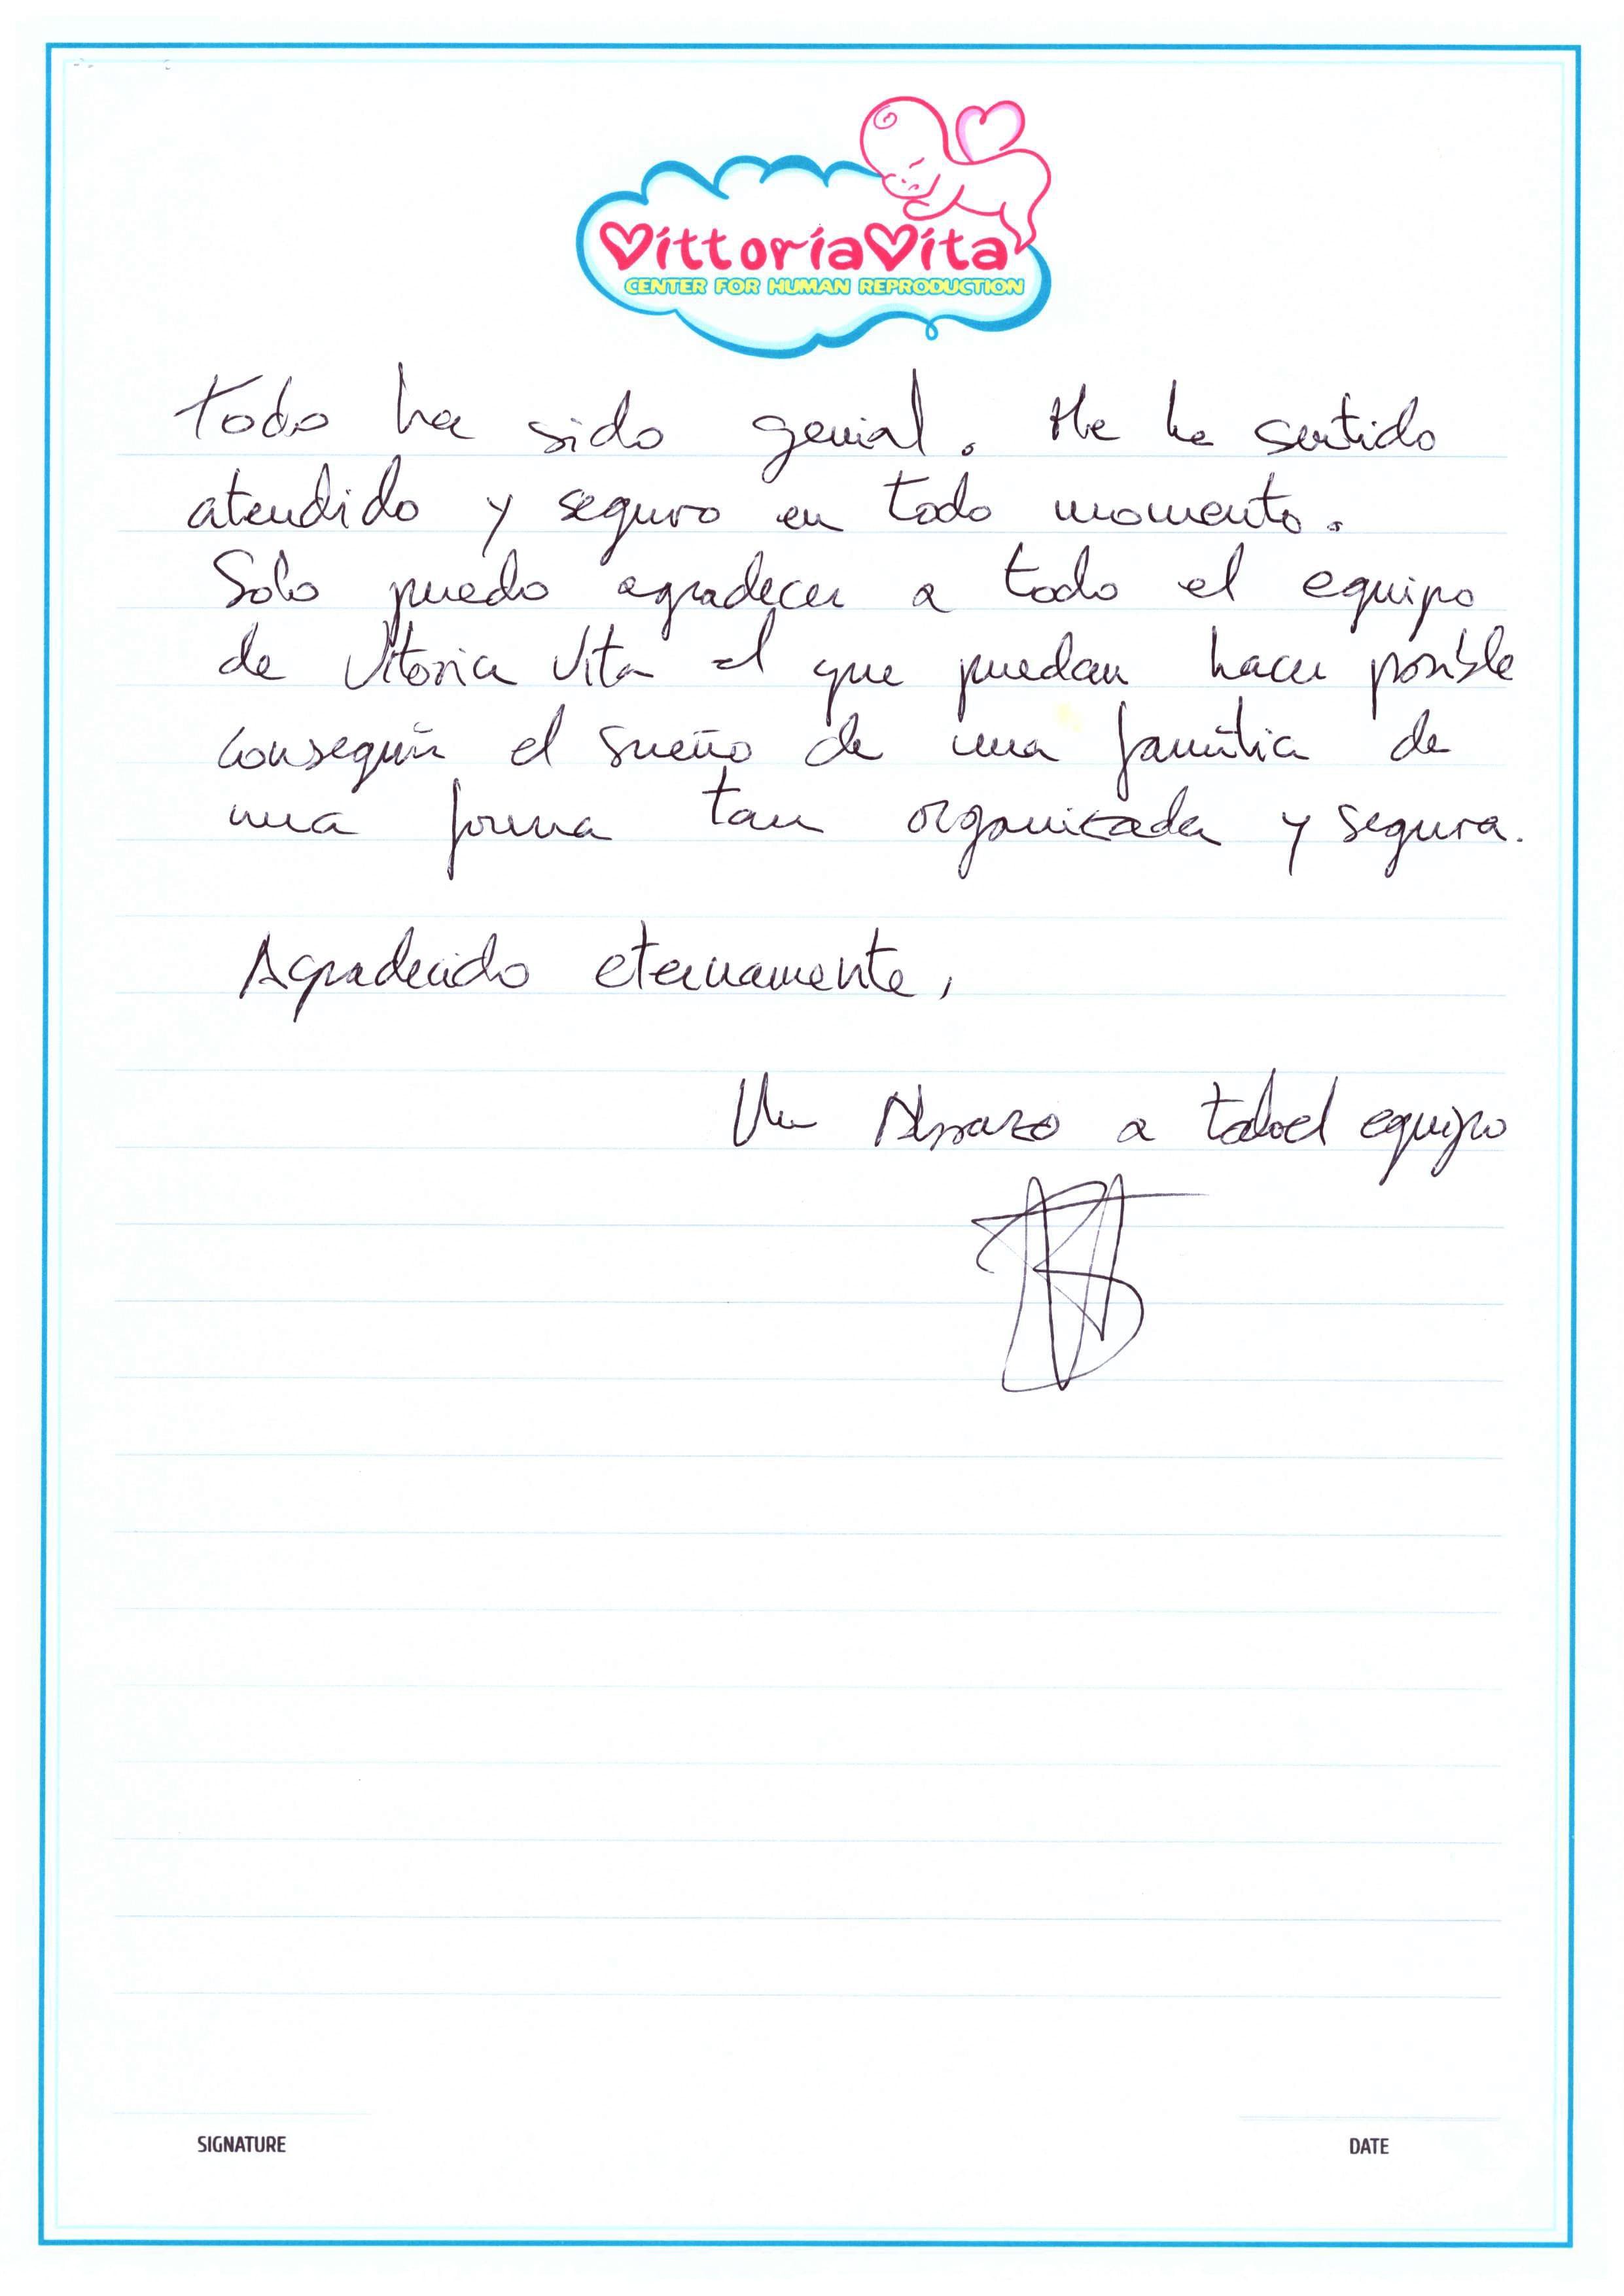 VittoriaVita
CENTER FOR HUMAN REPRODUCTION
Todo ha sido genial. Me he sentido
atendido y seguro en todo momento.
Solo puedo agradecer a todo el equipo
de Vitoria Vita el que puedan hacer posible
conseguir el sueño de una familia de
una forma tan organizada y segura.
Agradecido eternamente,
Un Abrazo a todo el equipo
SIGNATURE
DATE